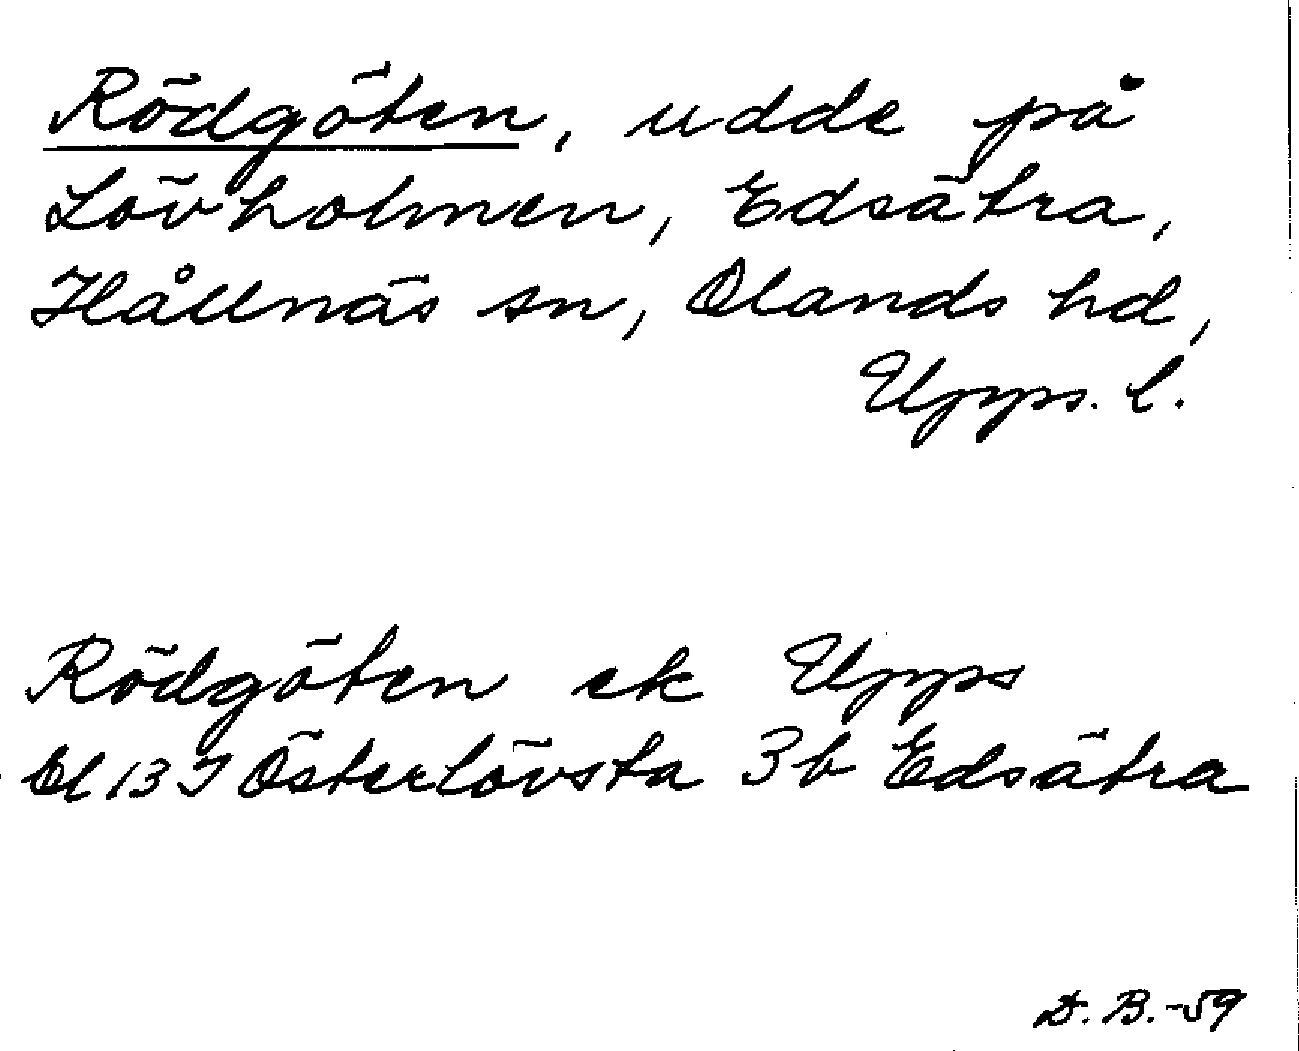 Rödgöten, udde på
Lövholmen, Edsätra,
Hållnäs sn, Olands hd,
Upps. l.
Rödgöten ek Upps
bl 13 I Österlövsta 3b Edsätra
D. B. -59